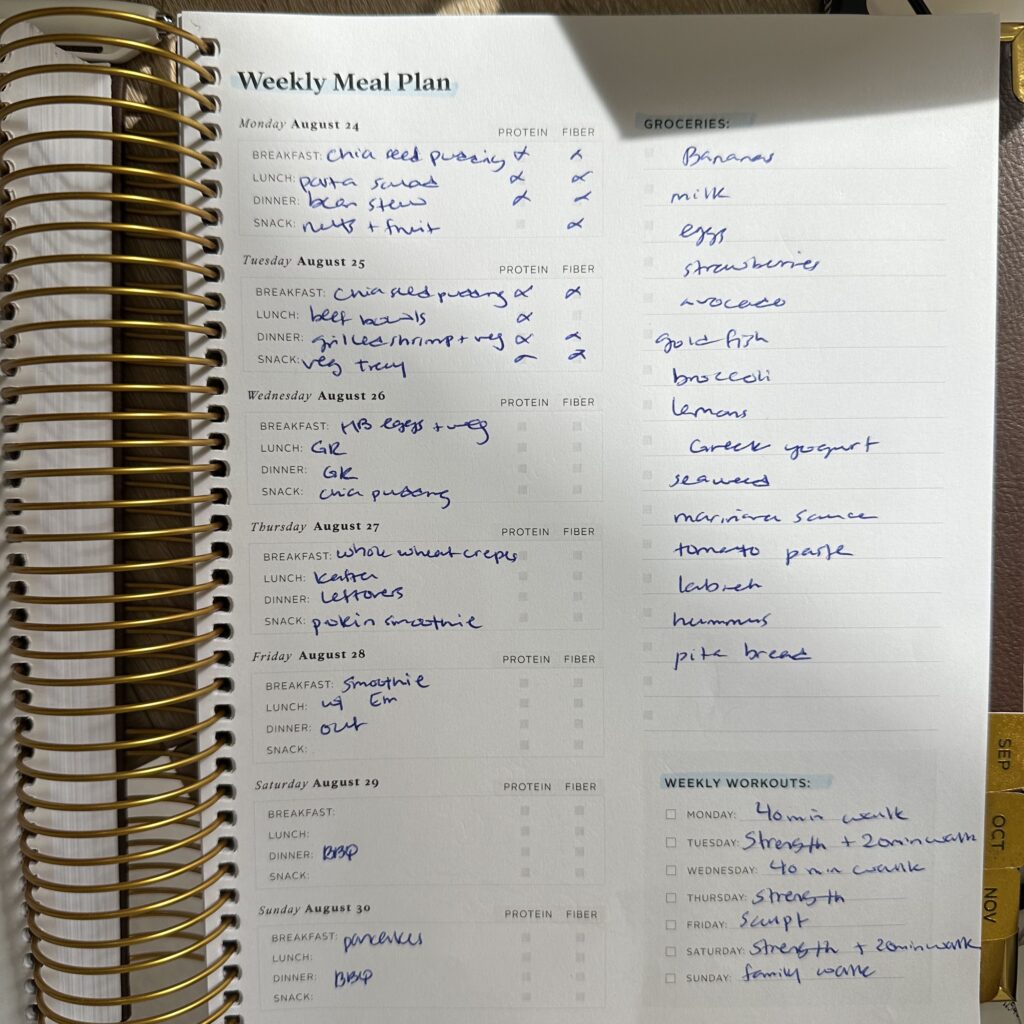 Weekly Meal Plan
Monday August 24
PROTEIN FIBER
BREAKFAST: chia seed pudding x x
LUNCH: pasta salad x x
DINNER: bean stew x x
SNACK: nuts + fruit x
Tuesday August 25
PROTEIN FIBER
BREAKFAST: chia seed pudding x x
LUNCH: beef bowls x
DINNER: grilled shrimp + veg x x
SNACK: veg tray x x
Wednesday August 26
PROTEIN FIBER
BREAKFAST: HB eggs + veg
LUNCH: GR
DINNER: GR
SNACK: chia pudding
Thursday August 27
PROTEIN FIBER
BREAKFAST: whole wheat crepes
LUNCH: kafta
DINNER: Leftovers
SNACK: smoothie
Friday August 28
PROTEIN FIBER
BREAKFAST: smoothie
LUNCH: w/ Em
DINNER: out
SNACK:
Saturday August 29
PROTEIN FIBER
BREAKFAST:
LUNCH:
DINNER: BBQ
SNACK:
Sunday August 30
PROTEIN FIBER
BREAKFAST: pancakes
LUNCH:
DINNER: BBQ
SNACK:
GROCERIES:
Bananas
milk
eggs
strawberries
avocado
gold fish
broccoli
lemons
Greek yogurt
seaweed
marinara sauce
tomato paste
labneh
hummus
pita bread
WEEKLY WORKOUTS:
MONDAY: 40 min walk
TUESDAY: Strength + 20 min walk
WEDNESDAY: 40 min walk
THURSDAY: strength
FRIDAY: Sculpt
SATURDAY: strength + 20 min walk
SUNDAY: family walk
SEP
OCT
NOV